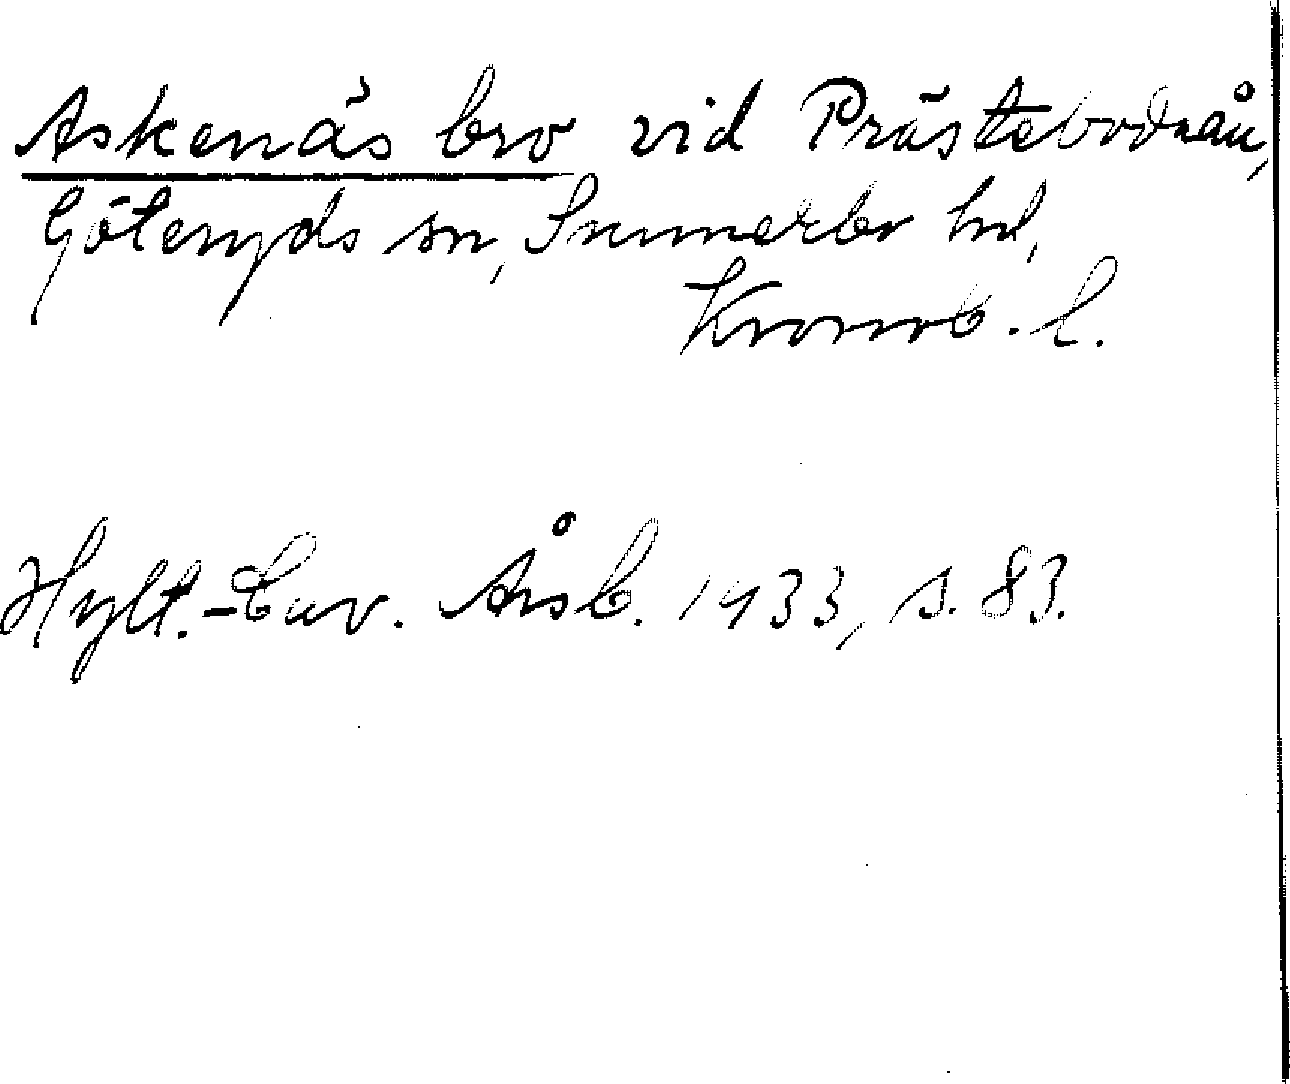 Askenäs bro vid Prästebodaån,
Göteryds sn, Sunnerbo hd,
Kronob. l.
Hylt.-Cav. Årsb. 1933, s. 83.